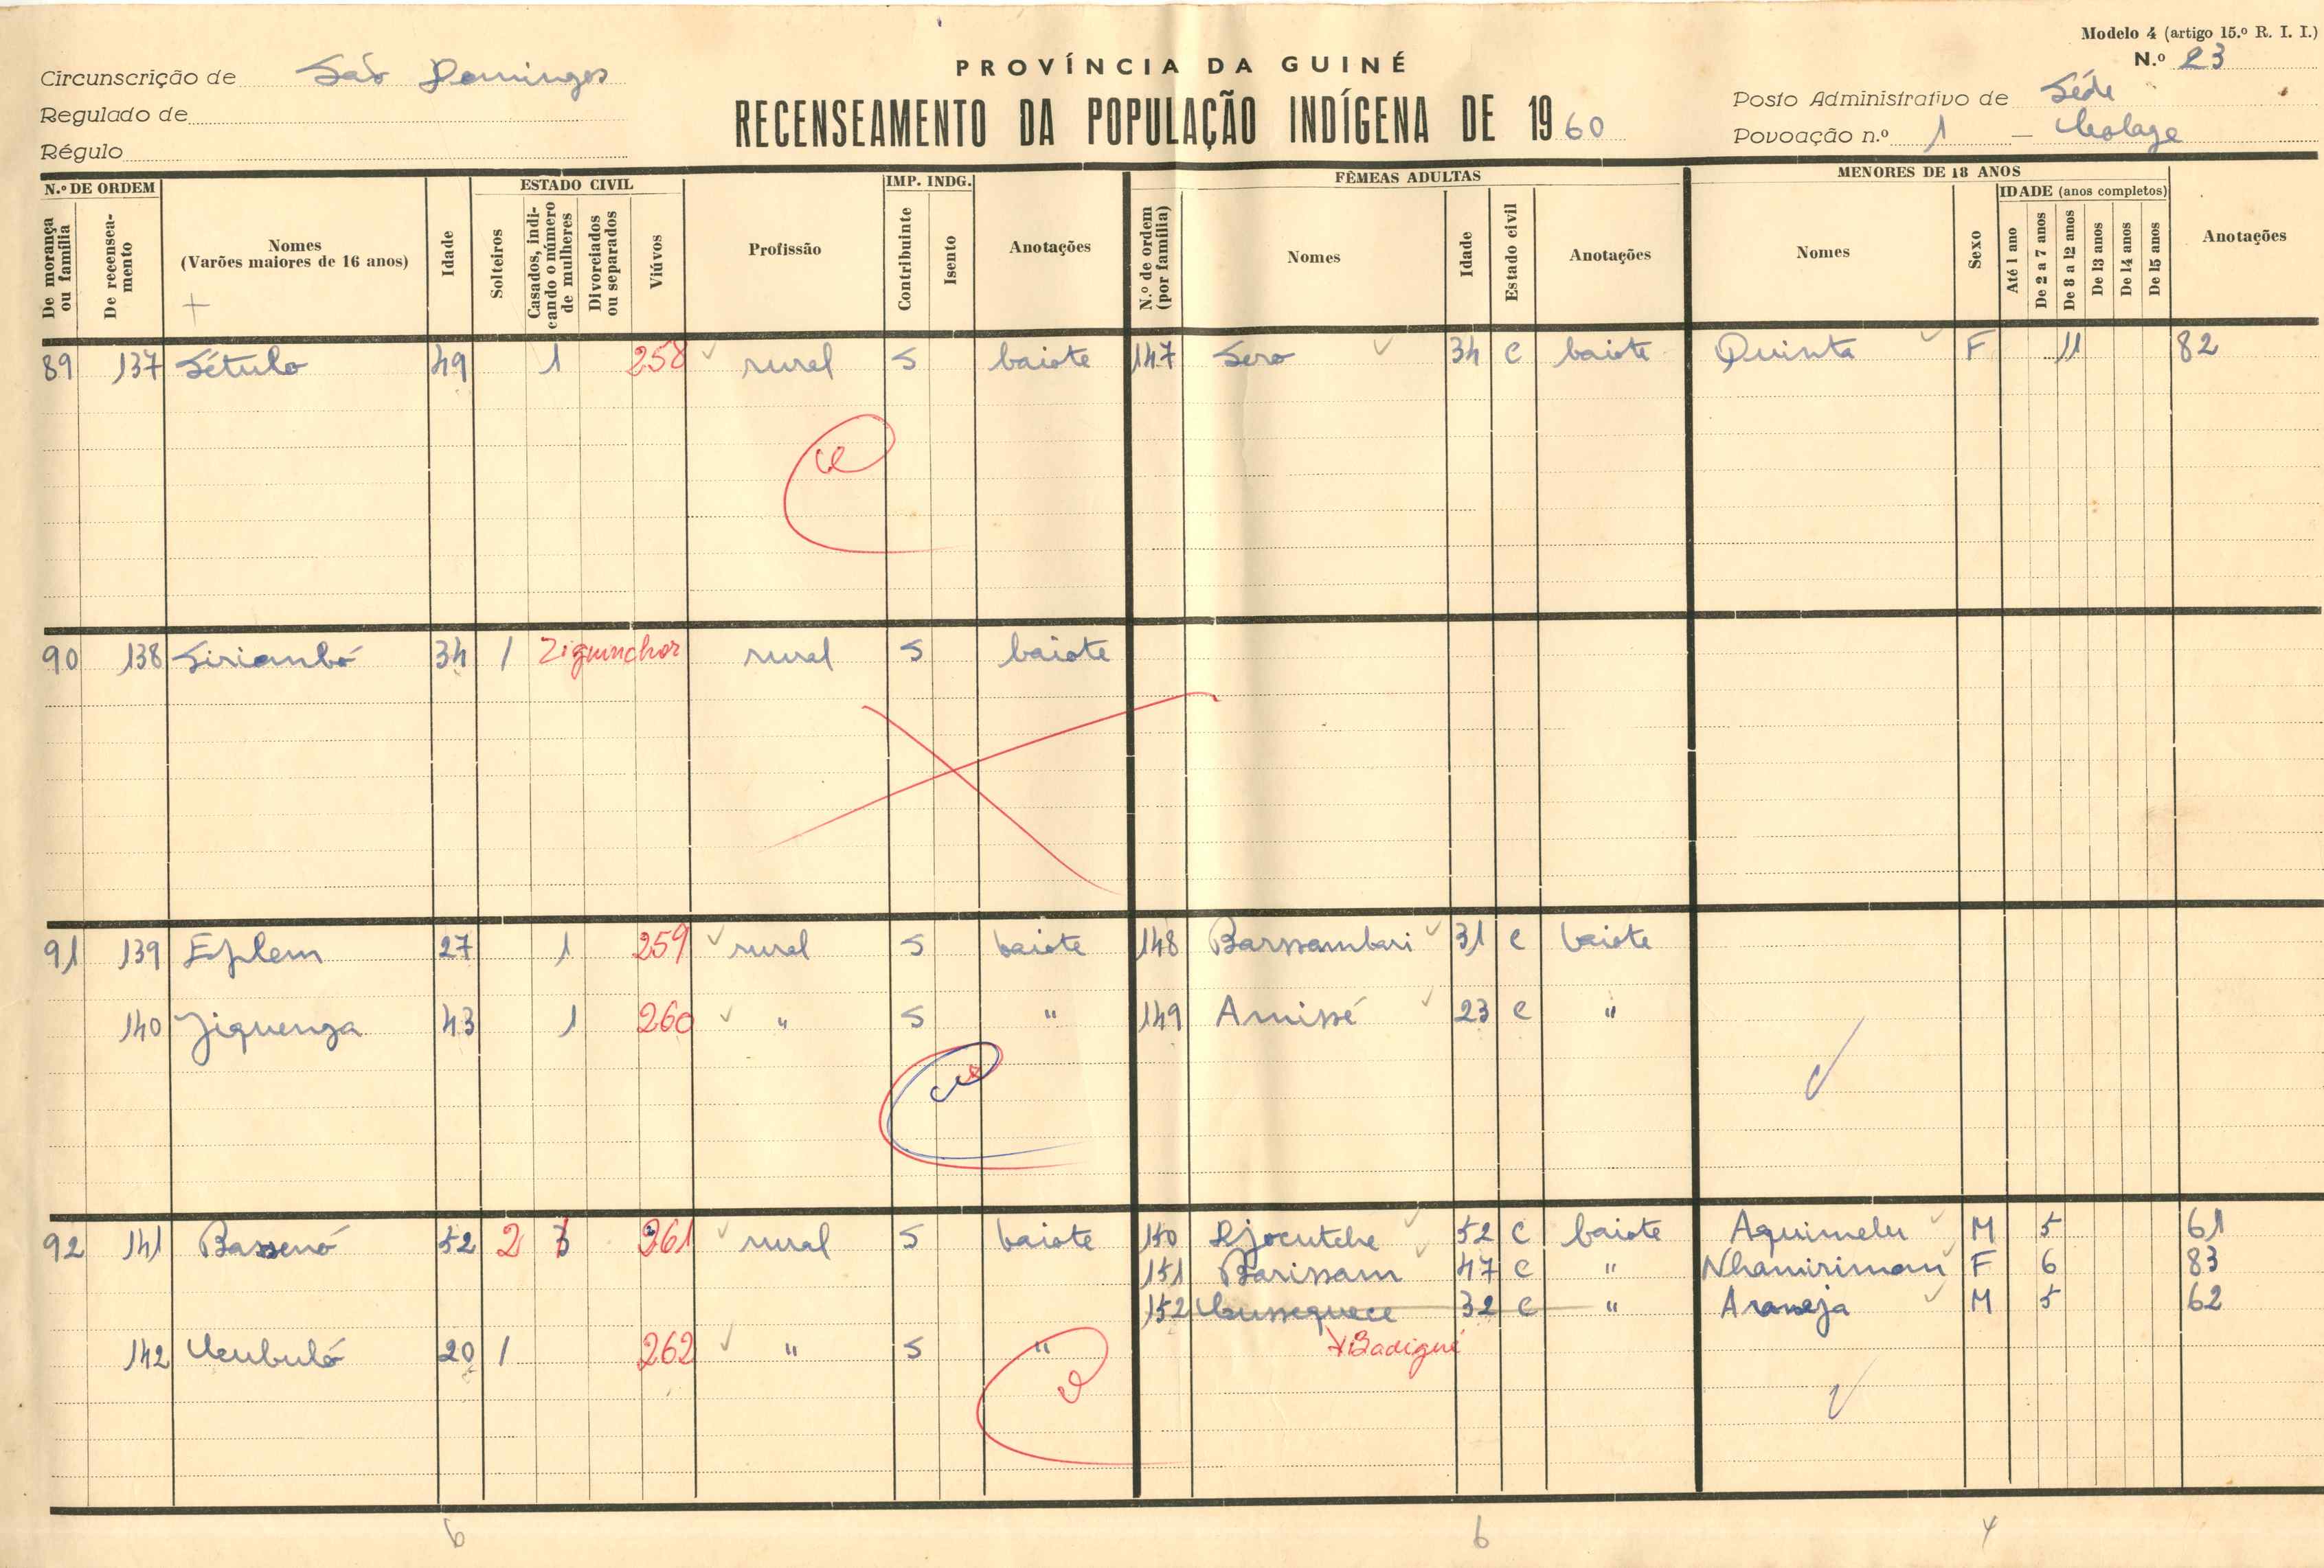 Modelo 4 (artigo 15.º R. I. I.)
N.º 23
PROVÍNCIA DA GUINÉ
RECENSEAMENTO DA POPULAÇÃO INDÍGENA DE 1960
Circunscrição de São Domingos
Regulado de
Régulo
Posto Administrativo de Séde
Povoação n.º 1 –
N.º DE ORDEM
De morança ou família
De recenseamento
Nomes
(Varões maiores de 16 anos)
+
Idade
ESTADO CIVIL
Solteiros
Casados, indicando o número de mulheres
Divorciados ou separados
Viúvos
Profissão
IMP. INDG.
Contribuinte
Isento
Anotações
FÊMEAS ADULTAS
N.º de ordem (por família)
Nomes
Idade
Estado civil
Anotações
MENORES DE 18 ANOS
Nomes
Sexo
IDADE (anos completos)
Até 1 ano
De 2 a 7 anos
De 8 a 12 anos
De 13 anos
De 14 anos
De 15 anos
Anotações
89 137 Sétulo 49 1 258 rural S baiote 147 Sero 34 c baiote Quinta F 11 82
90 138 Siriambó 34 1 Ziguinchor rural S baiote
91 139 Eplem 27 1 259 rural S baiote 148 Barssambari 31 c baiote
140 Jiquenga 43 1 260 " S " 149 Amissé 23 c "
92 141 Bassenó 52 2 261 rural S baiote 150 Djocutche 52 c baiote Aquimelu M 5 61
151 Barissam 47 c " Nhamiriman F 6 83
152 Ussequece 32 c " Aramseja M 5 62
142 20 1 262 " S " Badigué
6 6 4